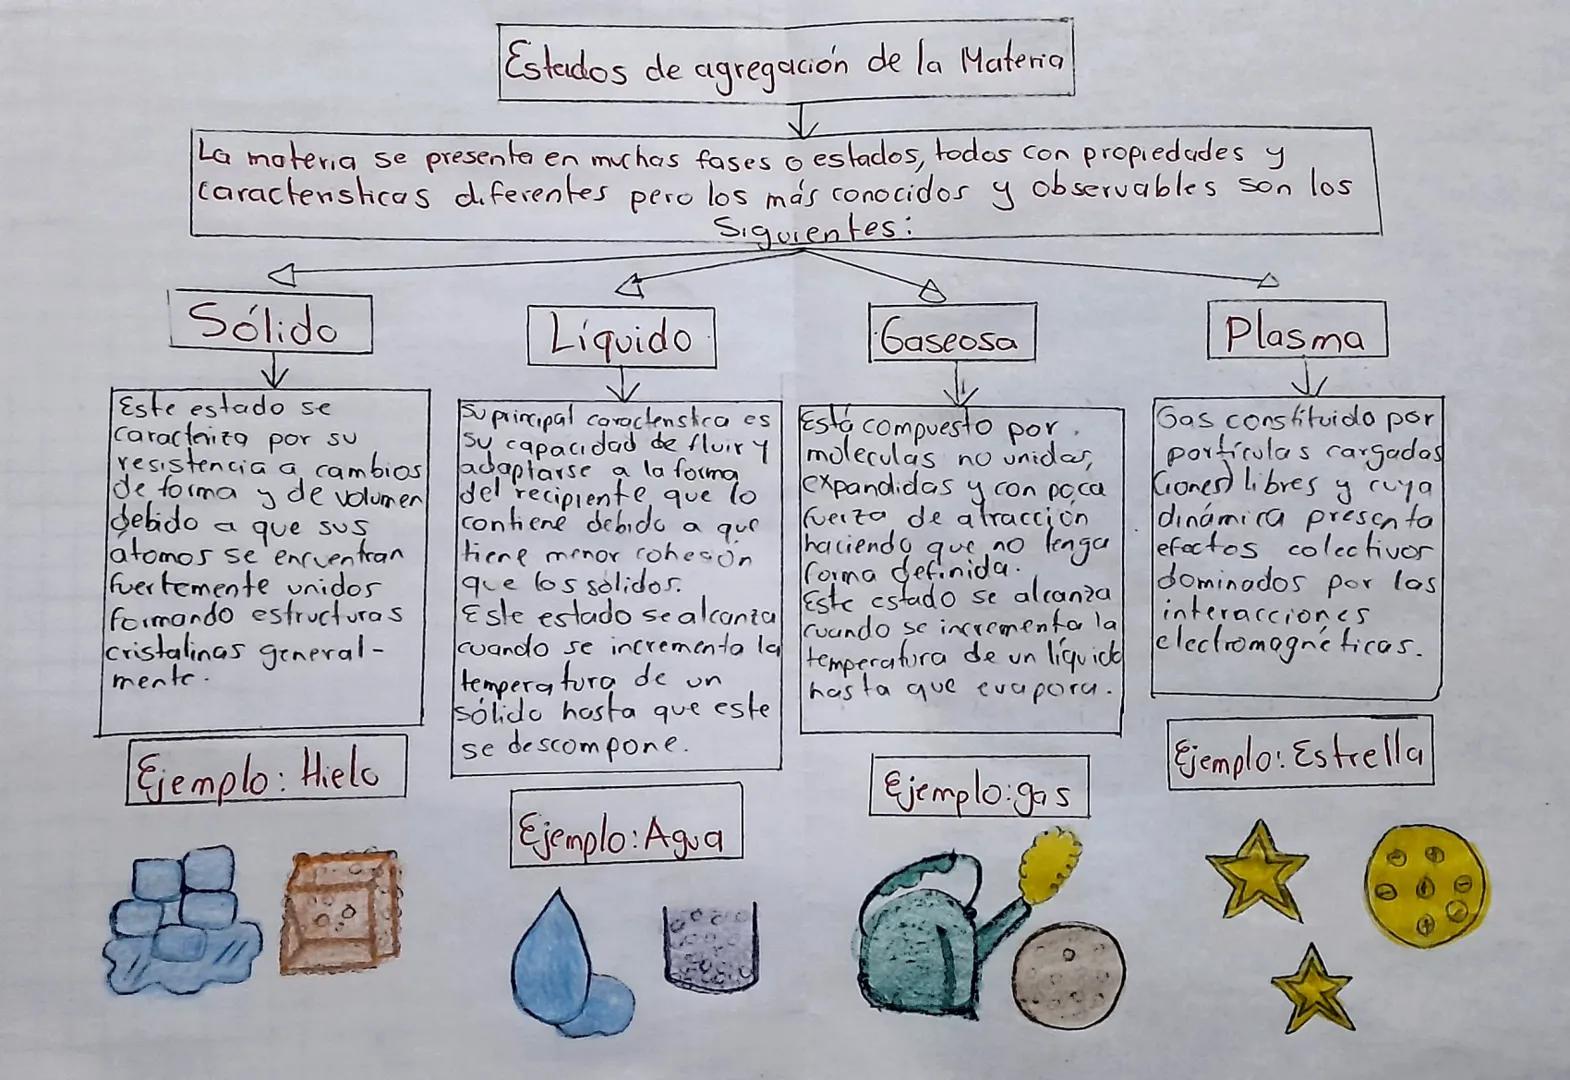 Estados de agregación de la Materia
La materia se presenta en muchas fases o estados, todos con propiedades y
características diferentes pero los más conocidos y observables son los
Siguientes:
Sólido
Este estado se
caracteriza por su
resistencia a cambios
de forma y de volumen
debido a que sus
atomos se encuentran
fuertemente unidos
formando estructuras
cristalinas general-
mente.
Ejemplo: Hielo
Líquido
Su principal característica es
su capacidad de fluir y
adaptarse a la forma
del recipiente que lo
contiene debido a que
tiene menor cohesión
que los sólidos.
Este estado se alcanza
cuando se incrementa la
temperatura de un
sólido hasta que este
se descompone.
Ejemplo: Agua
Gaseosa
Está compuesto por
moleculas no unidas,
expandidas y con poca
fuerza de atracción
haciendo que no tenga
forma definida.
Este estado se alcanza
cuando se incrementa la
temperatura de un líquido
hasta que evapora.
Ejemplo: gas
Plasma
Gas constituido por
partículas cargadas
(iones) libres y cuya
dinámica presenta
efectos colectivos
dominados por las
interacciones
electromagnéticas.
Ejemplo: Estrella